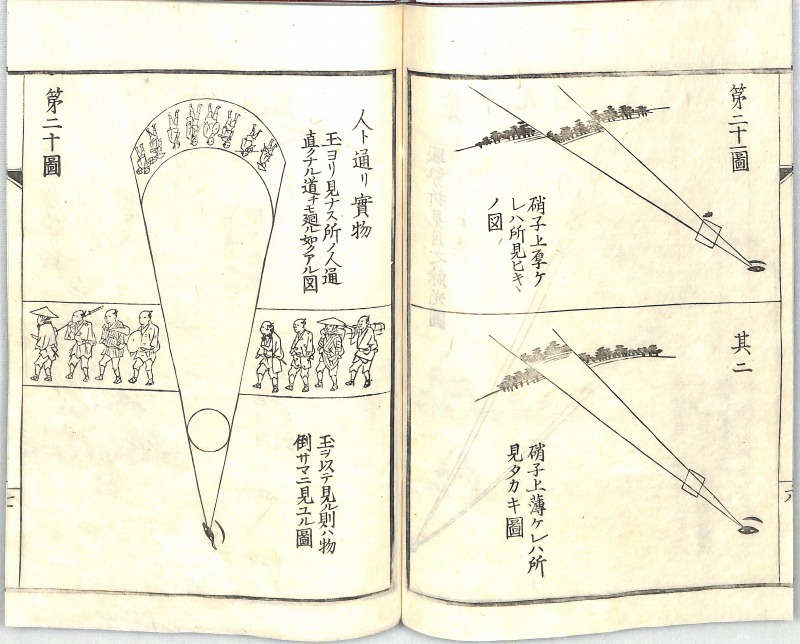 第二十一圖
硝子上厚ケ
レハ所見ヒキヽ
ノ図
其二
硝子上薄ケレハ所
見タカキ圖
人ト通リ實物
玉ヨリ見ナス所ノ人通
直クナル道チモ廻ル如クアル図
玉ヲ以テ見ル則ハ物
倒サマニ見ユル圖
第二十圖